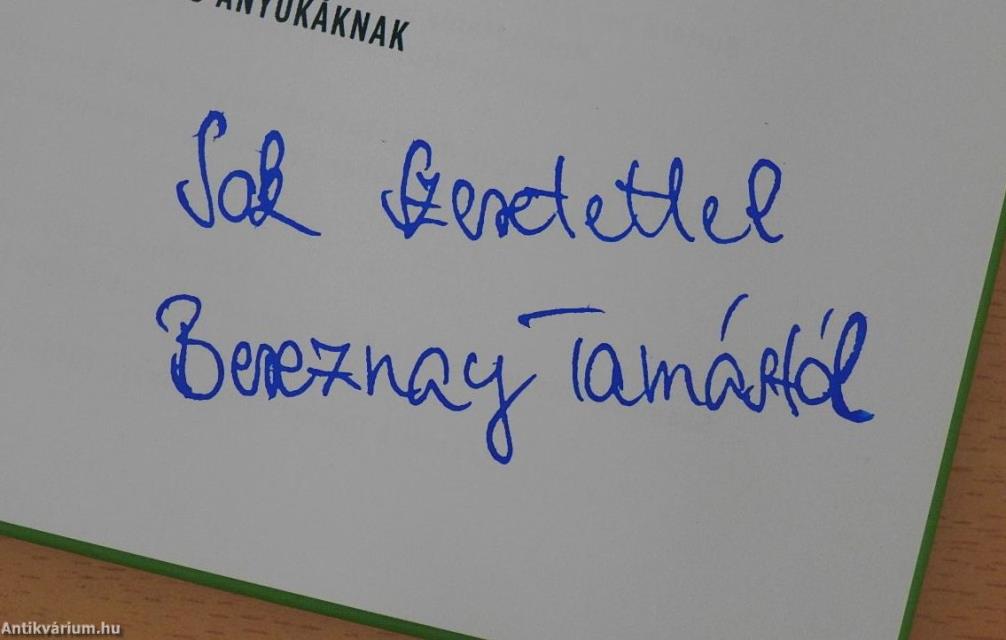 ANYUKÁKNAK
Sok szeretettel
Bereznay Tamástól
Antikvárium.hu